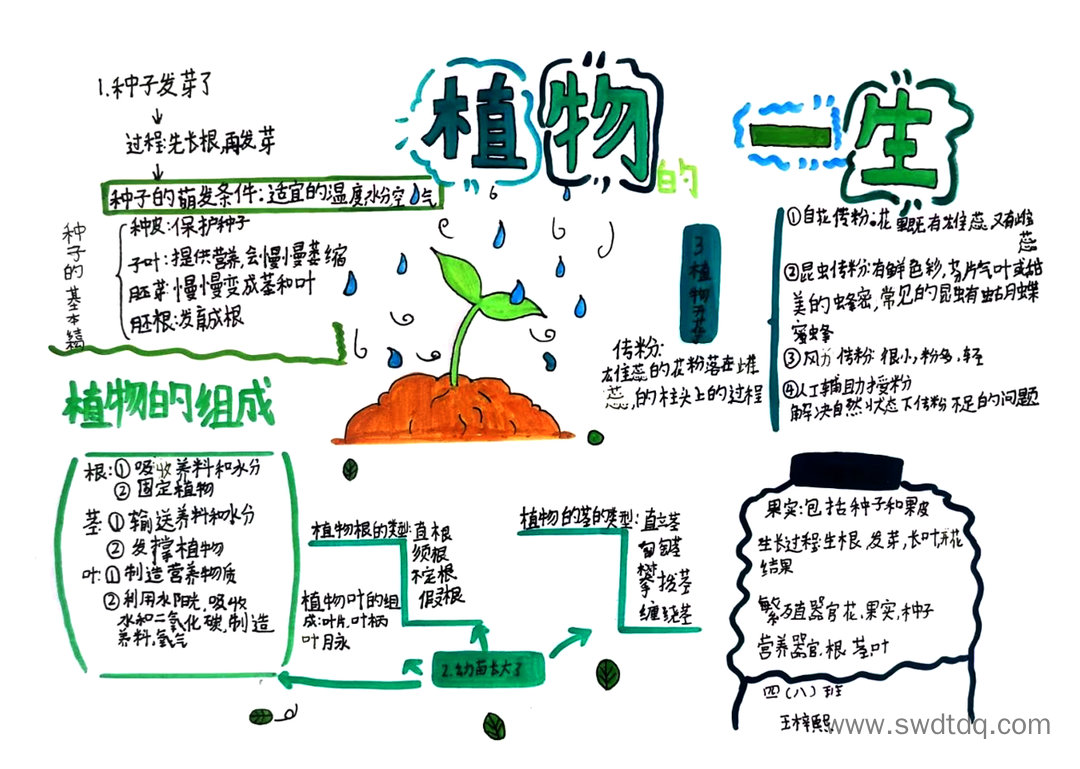 植物的一生
1.种子发芽了
过程:先长根,再发芽
种子的萌发条件:适宜的温度水分空气
种子的基本结
种皮:保护种子
子叶:提供营养,会慢慢萎缩
胚芽:慢慢变成茎和叶
胚根:发育成根
植物的组成
根:①吸收养料和水分
②固定植物
茎①输送养料和水分
②支撑植物
叶:①制造营养物质
②利用水阳光,吸收
水和二氧化碳,制造
养料,氧气
2.幼苗长大了
植物根的类型:直根
须根
不定根
假根
植物叶的组
成:叶片,叶柄
叶脉
植物的茎的类型:直立茎
匍匐茎
攀援茎
缠绕茎
3植物开花
传粉:
雄蕊的花粉落在雌
蕊,的柱头上的过程
①自花传粉:花里既有雄蕊又有雌
蕊
②昆虫传粉:有鲜色彩,芬片气叶或甜
美的蜂密,常见的昆虫有蝴蝶
蜜蜂
③风力传粉:很小,粉多,轻
④人工辅助授粉
解决自然状态下传粉不足的问题
果实:包括种子和果皮
生长过程:生根,发芽,长叶开花
结果
繁殖器官花,果实,种子
营养器官.根.茎叶
四(八)班
王梓熙
www.swdtdq.com